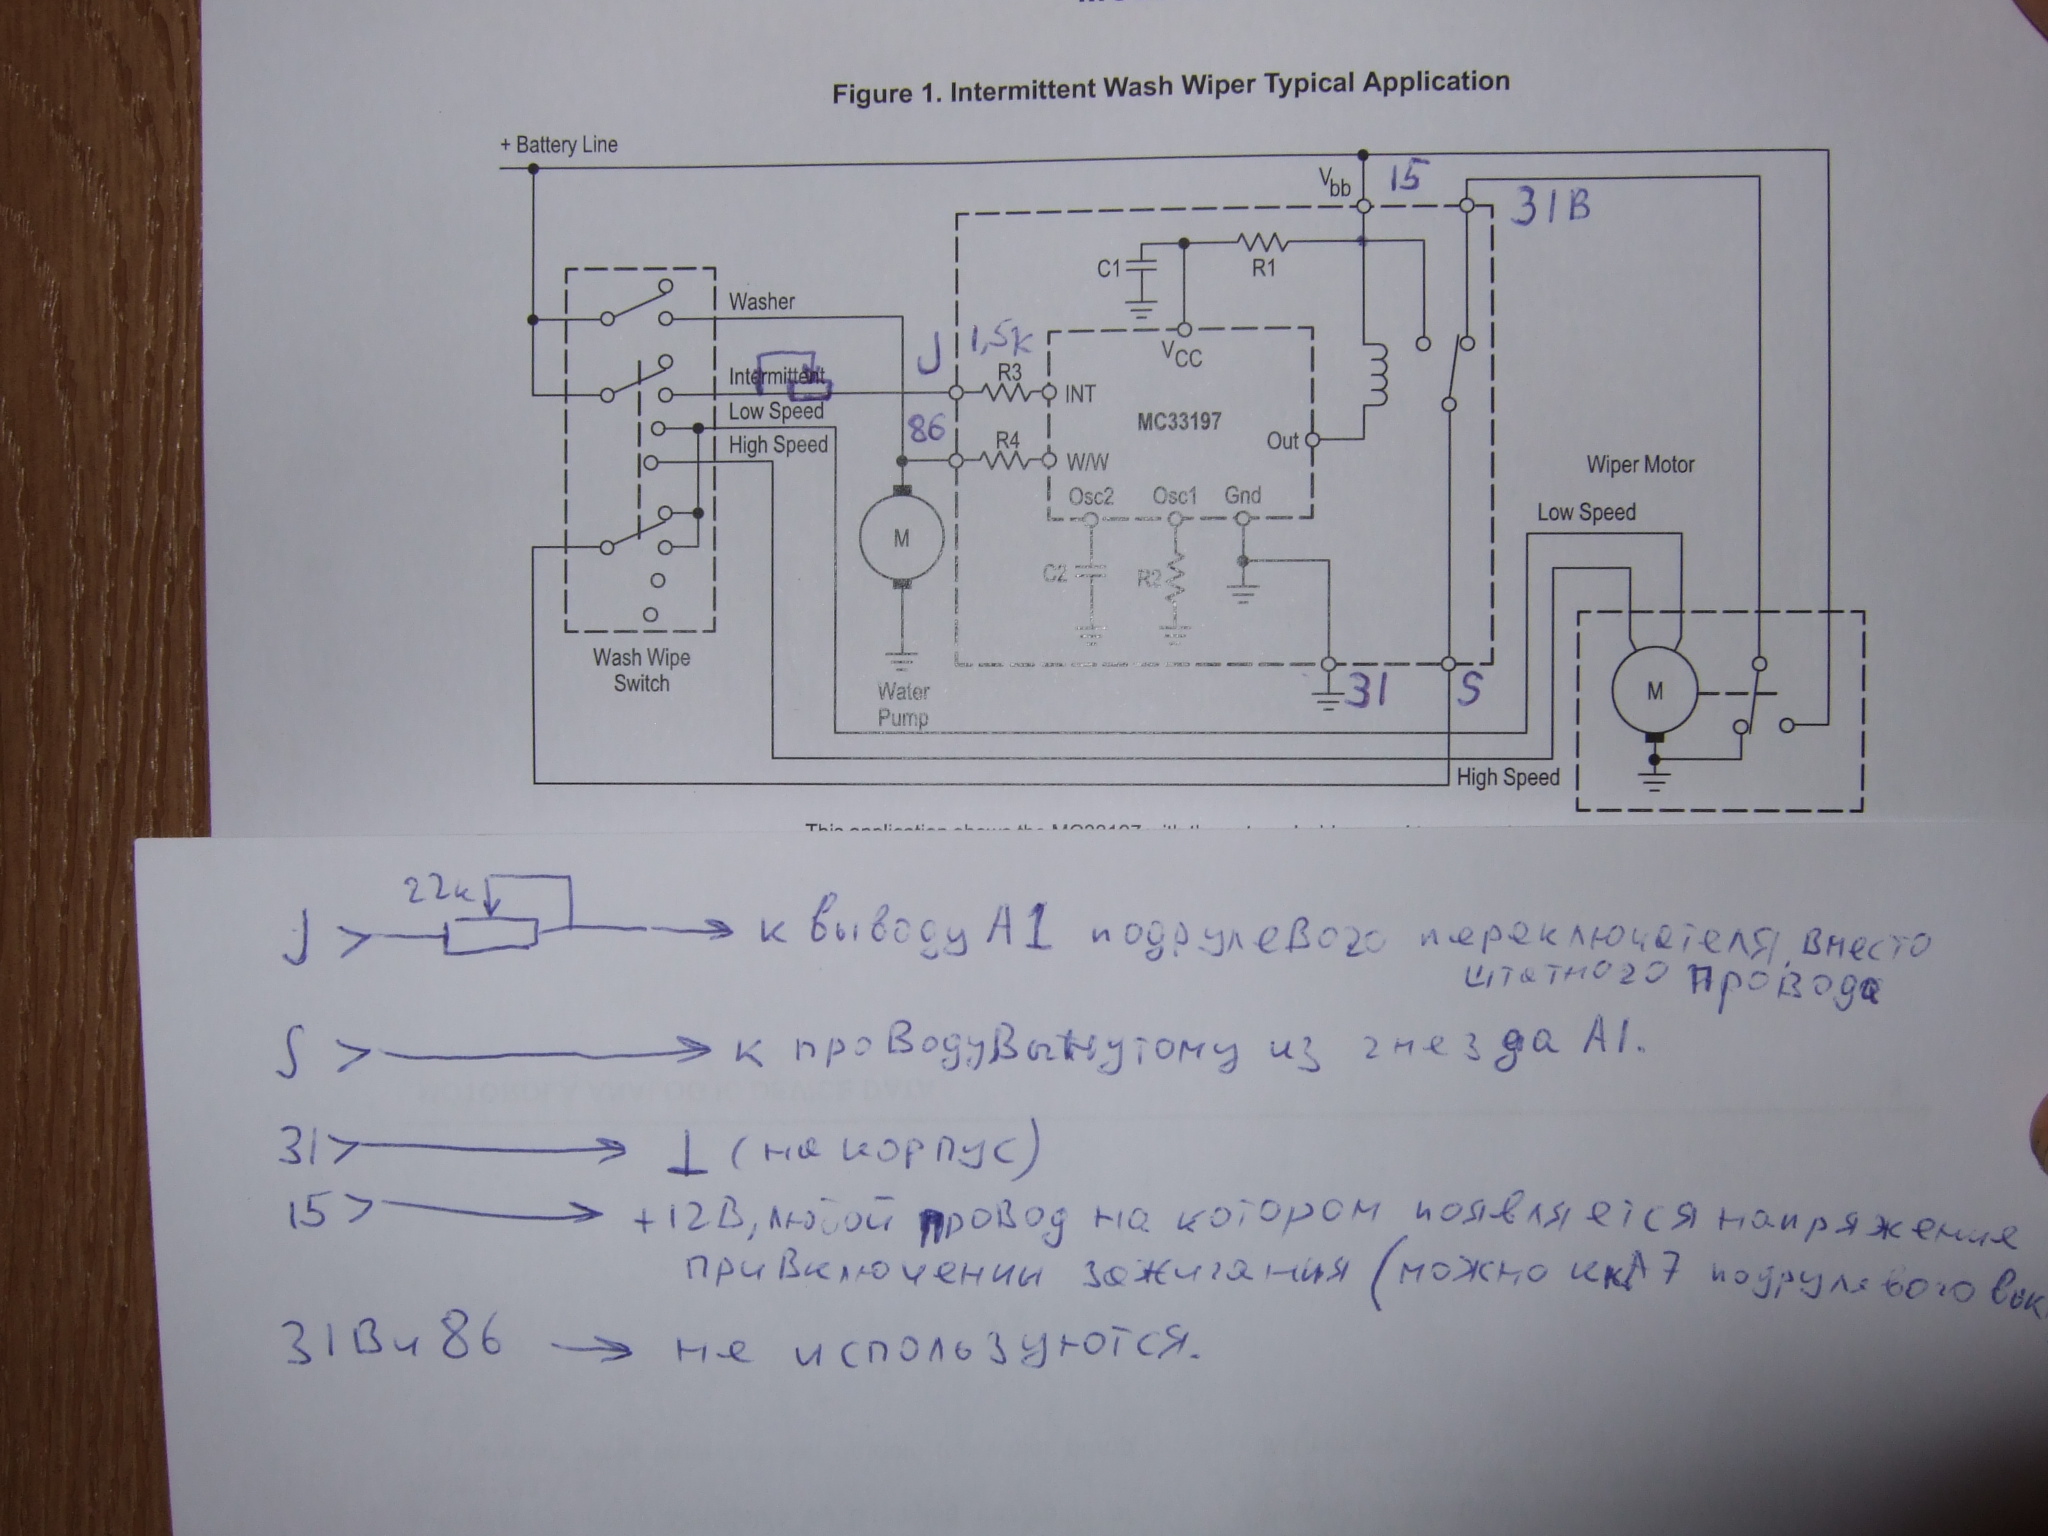 Figure 1. Intermittent Wash Wiper Typical Application
+ Battery Line
Vbb
15
31В
C1
R1
Washer
J
1,5к
VCC
Intermittent
R3
INT
Low Speed
86
MC33197
High Speed
R4
W/W
Out
Wiper Motor
Osc2
Osc1
Gnd
Low Speed
M
C2
R2
Wash Wipe
Switch
Water
Pump
31
S
M
High Speed
22к
J к выводу А1 подрулевого переключателя, вместо
штатного провода
S к проводу вынутому из гнезда А1.
31 ⊥ (на корпус)
15 +12В, любой провод на котором появляется напряжение
при включении зажигания (можно к кА7 подрулевого вык
31В и 86 → не используются.